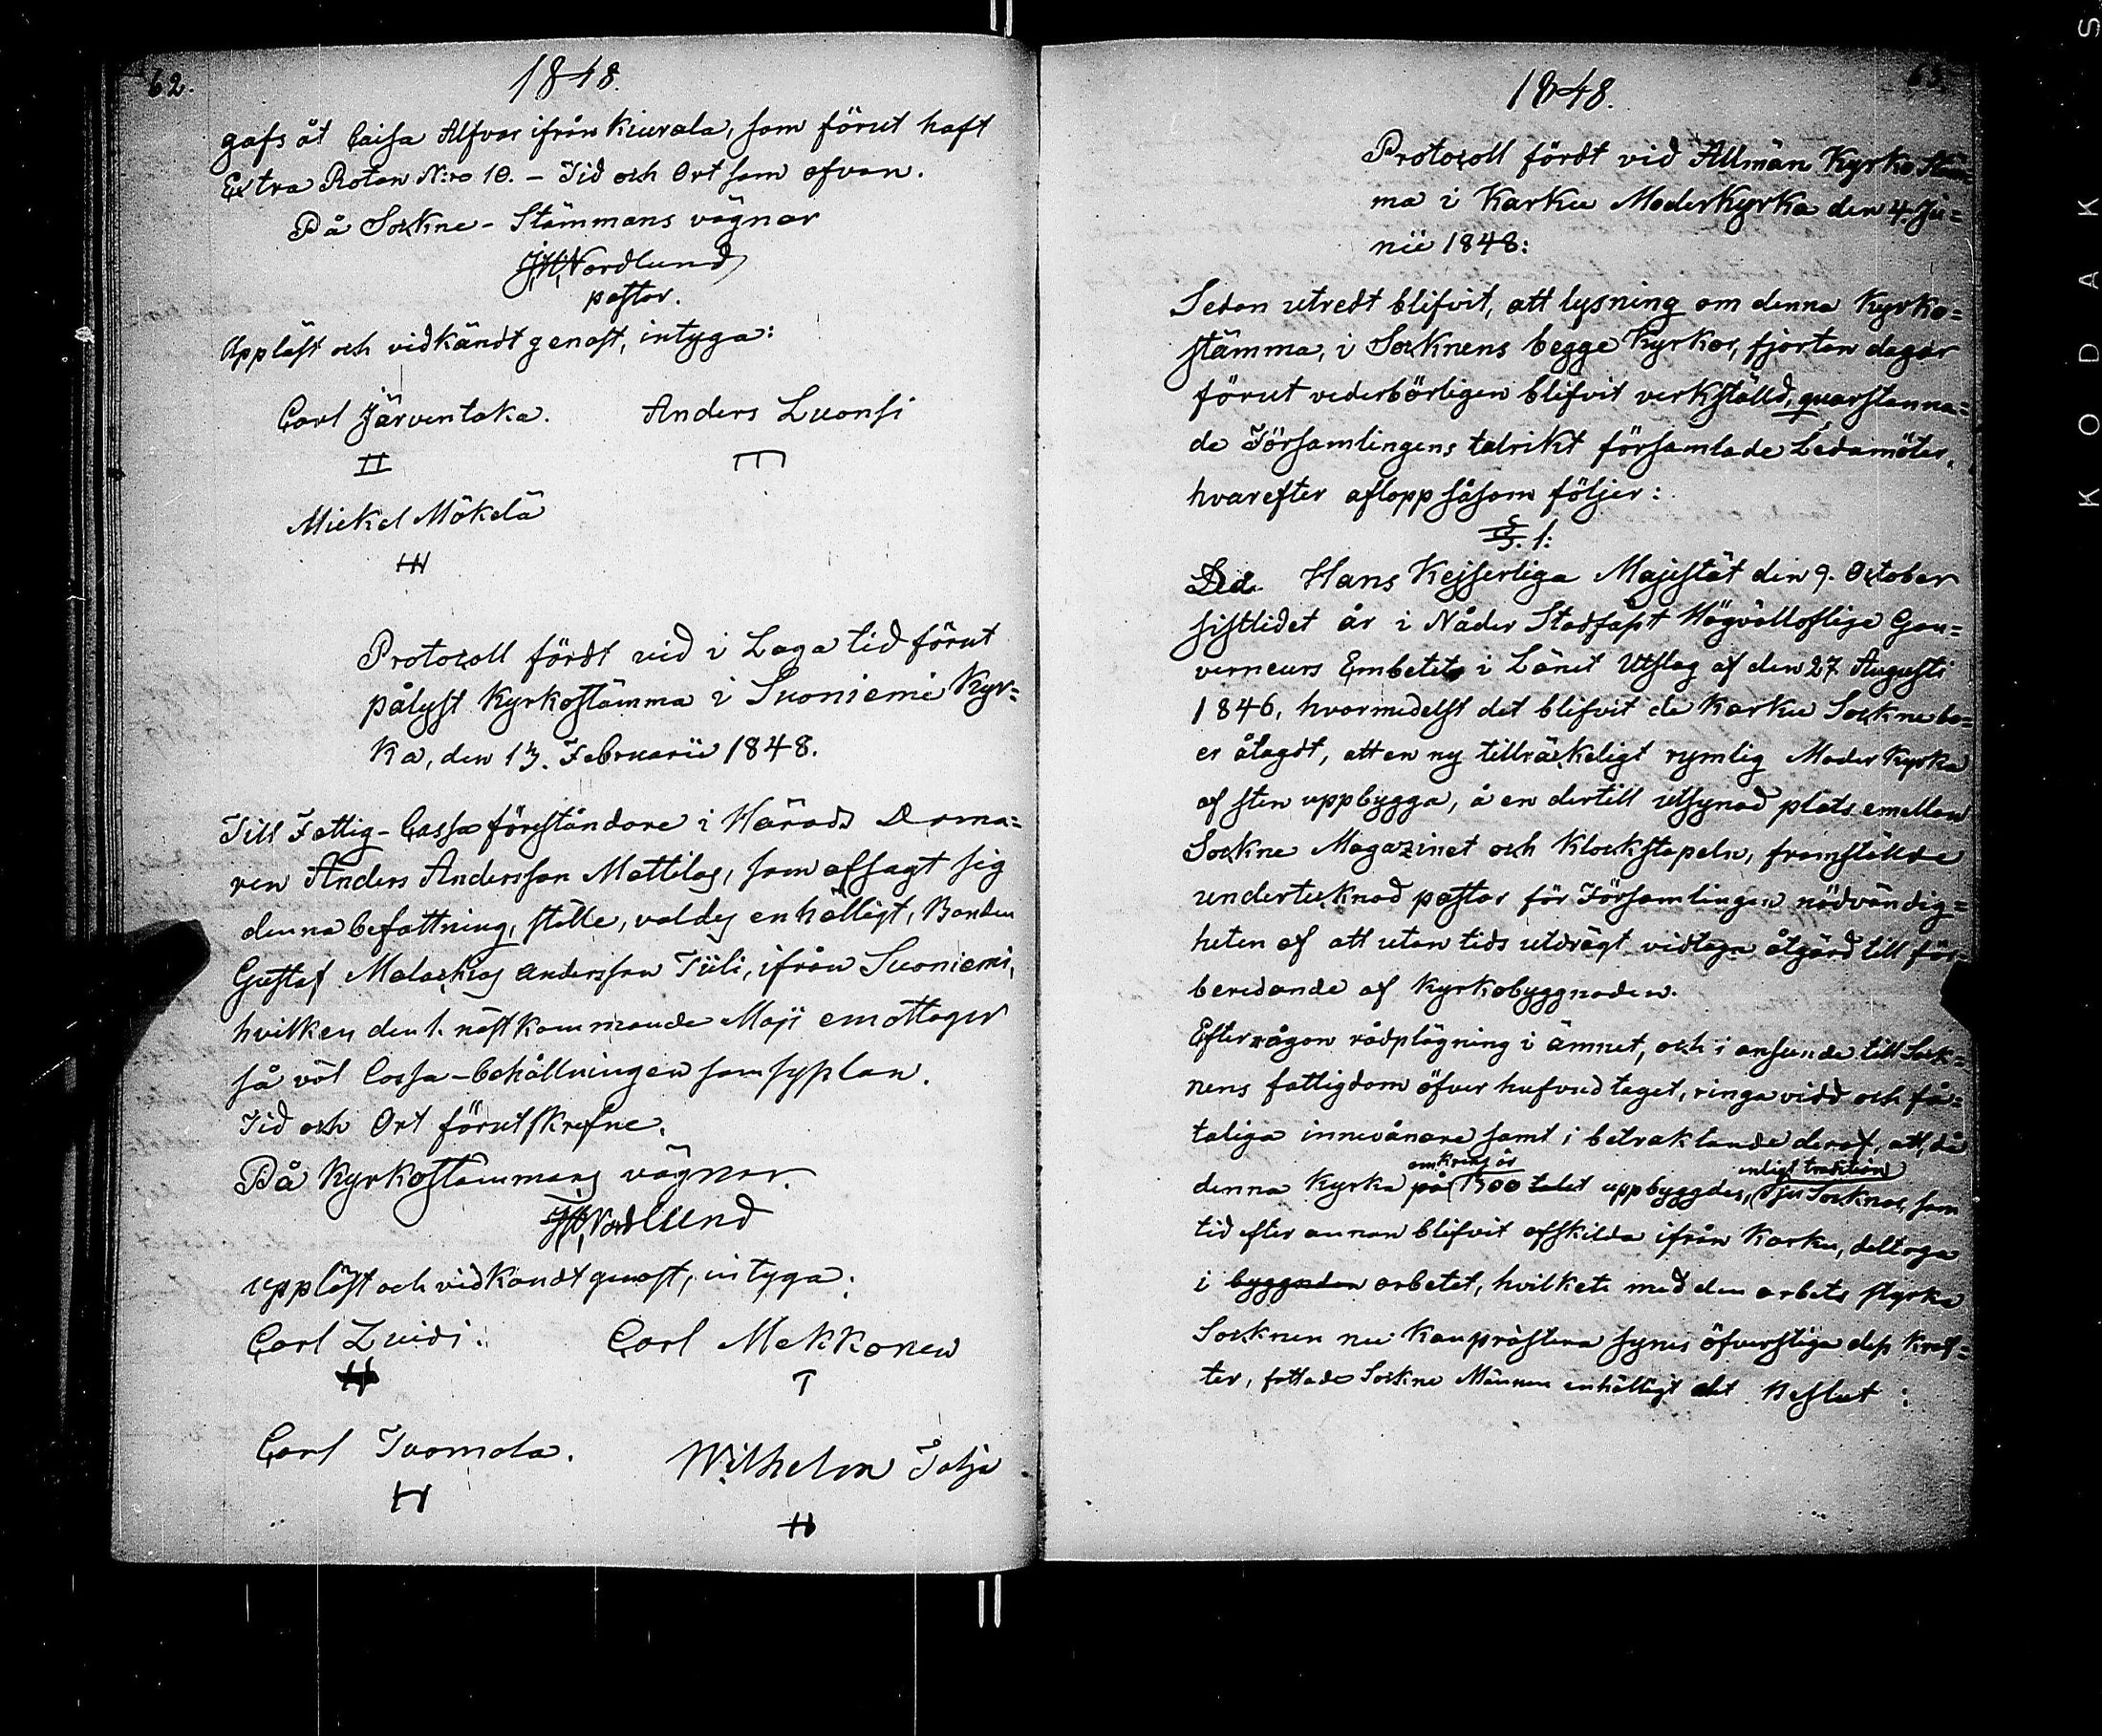 62.
1848.
gafs åt Caisa Alfvar ifrån Kiurala, som förut haft
Extra Rotan N:ro 10. - Tid och Ort som ofvan.
På Sockne-Stämmans vägnar
JH Nordlund
pastor.
Uppläst och vidkändt genast, intyga:
Carl Järventaka. Anders Luonsi
Mickel Mäkelä
Protocoll fördt vid i Laga tid förut
pålyst Kyrkostämma i Suoniemi Kyr=
ka, den 13. Februarii 1848.
Till Fattig-Cassa föreståndare i Härads Doma=
ren Anders Andersson Mattilas, som afsagt sig
denna befattning, ställe, valdes enhälligt, Bonden
Gustaf Malachias Andersson Tiili, ifrån Suoniemi,
hvilken den 1. nästkommande Maji emottager
så väl Cassa-behållningen som sysslan.
Tid och Ort förutskrefne.
På Kyrkostämmans vägnar.
JH Nordlund
Uppläst och vidkändt genast, intyga:
Carl Zuidi. Carl Mekkonen
Carl Tuomola. Wilhelm Talja
63.
1848.
Protocoll fördt vid Allmän Kyrko Stäm=
ma i Karku Moderkyrka den 4 Ju=
nii 1848:
Sedan utredt blifvit, att lysning om denna Kyrko=
stämma, i Socknens begge Kyrkor, fjorton dagar
förut vederbörligen blifvit verkställd, quarstanna=
de Församlingens talrikt församlade Ledamöter,
hvarefter aflopp såsom följer:
§. 1:
Hans Kejserliga Majestät den 9. October
sistlidet år i Nåder Stadfäst Högvälloflige Gou=
verneurs Embetets i Länet Utslag af den 27 Augusti
1846, hvarmedelst det blifvit de Karku Sockne bo=
er ålagdt, att en ny tillräckeligt rymlig Moder Kyrka
af sten uppbygga, å en dertill utsynad plats emellan
Sockne Magazinet och Klockstapeln, framställde
undertecknad pastor för Församlingen nödvändig=
heten af att utan tids utdrägt vidtaga åtgärd till för=
beredande af Kyrkobyggnaden.
Efter någon rådplägning i ämnet, och i anseende till Sock=
nens fattigdom öfver hufvud taget, ringa vidd och få=
taliga innevånare samt i betraktande deraf, att, då
omkring år enligt tradition
denna Kyrka på 1500 talet uppbyggdes, sju Socknar, som
tid efter annan blifvit afskilda ifrån Karku, deltoga
i byggnaden arbetet, hvilket med den arbets styrka
Socknen nu kan prästera synes öfverstiga dess kraf=
ter, fattade Sockne Männen enhälligt det Beslut:
KODAK S